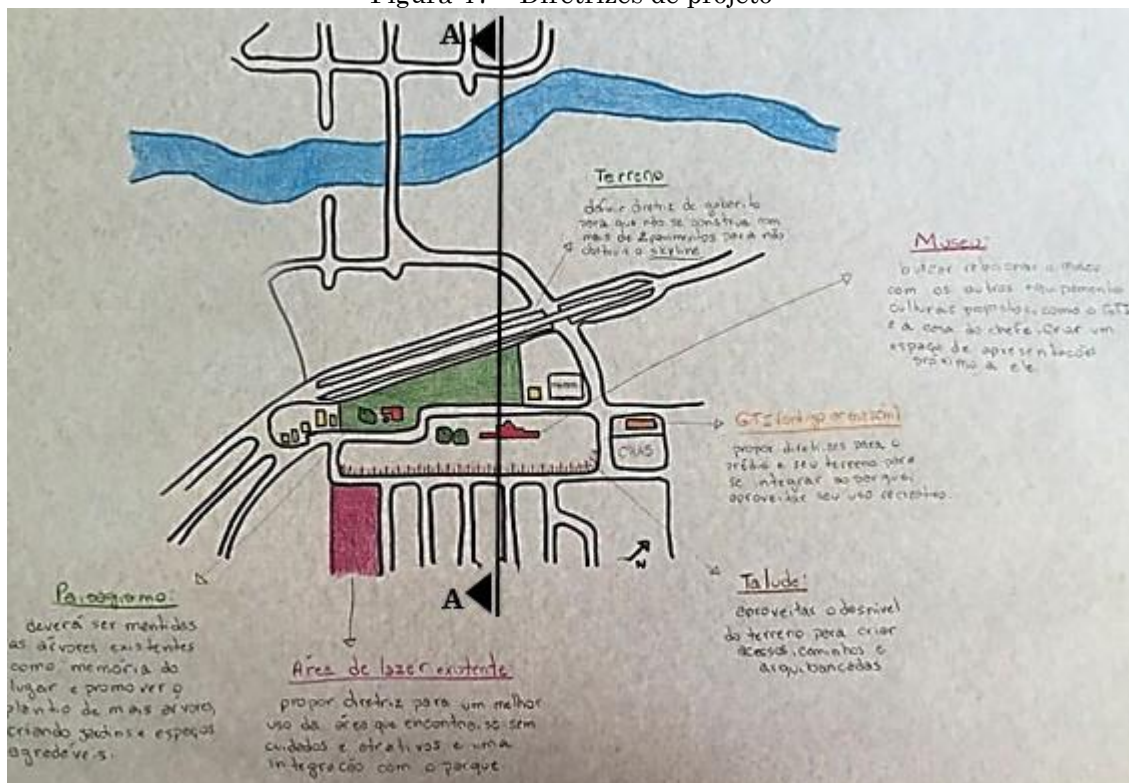 Figura 17 – Diretrizes de projeto
A
Terreno
definir diretriz de gabarito
para que não se construa com
mais de 2 pavimentos para não
destruir o skyline
Museu:
buscar relacionar o museu
com os outros equipamento
culturais propostos, como o GTI
e a casa do chefe. Criar um
espaço de apresentações
próximo a ele.
GTI (antigo armazém)
propor diretrizes para o
prédio e seu terreno para
se integrar ao parque
aproveitar seu uso recreativo.
CRAS
N
Talude:
aproveitar o desnível
do terreno para criar
acessos, caminhos e
arquibancadas
A
Paisagismo:
deverá ser mantidas
as árvores existentes
como memória do
lugar e promover o
plantio de mais árvores,
criando jardins e espaços
agradáveis.
Área de lazer existente
propor diretriz para um melhor
uso da área que encontra-se sem
cuidados e atrativos e uma
integração com o parque